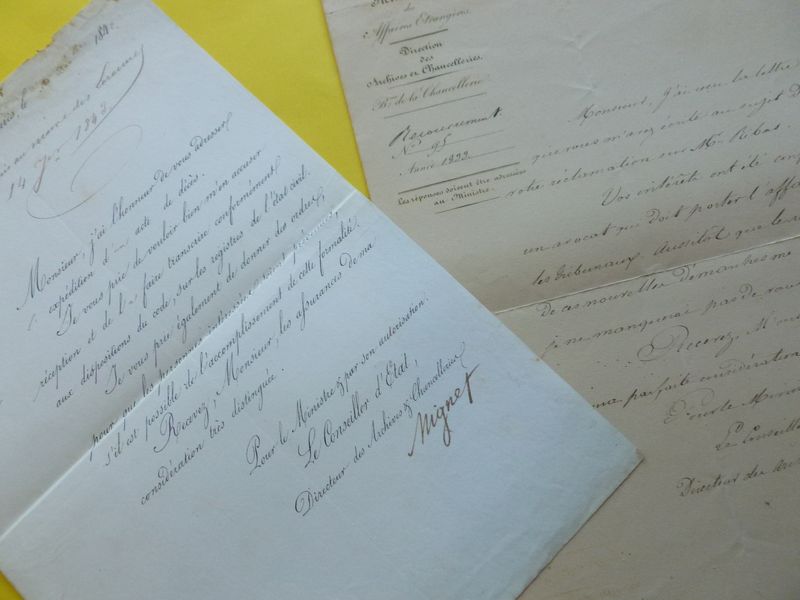 1842
14 9bre 1843
Monsieur, j'ai l'honneur de vous adresser
expédition d'un acte de décès.
Je vous prie de vouloir bien m'en accuser
réception et de le faire transcrire conformément
aux dispositions du code, sur les registres de l'état civil.
Je vous prie également de donner des ordres
pour que les personnes intéressées soient prévenues,
s'il est possible, de l'accomplissement de cette formalité.
Recevez, Monsieur, les assurances de ma
considération très distinguée.
Pour le Ministre & par son autorisation.
Le Conseiller d'Etat,
Directeur des Archives & Chancelleries
Mignet
des
Affaires Etrangères.
Direction
des
Archives et Chancelleries.
Bau de la Chancellerie
Recouvrement
N° 95
Année 1833.
Les réponses doivent être adressées
au Ministre.
Monsieur, j'ai reçu la lettre
que vous m'avez écrite au sujet
votre réclamation sur Mr. Ribas.
Vos intérêts ont été
un avocat qui doit porter l'affaire
les tribunaux. Aussitôt que le
de ces nouvelles démarches me
je ne manquerai pas de
Recevez, M
parfaite considération
Pour le Minis
Le Conseiller
Directeur des Arch